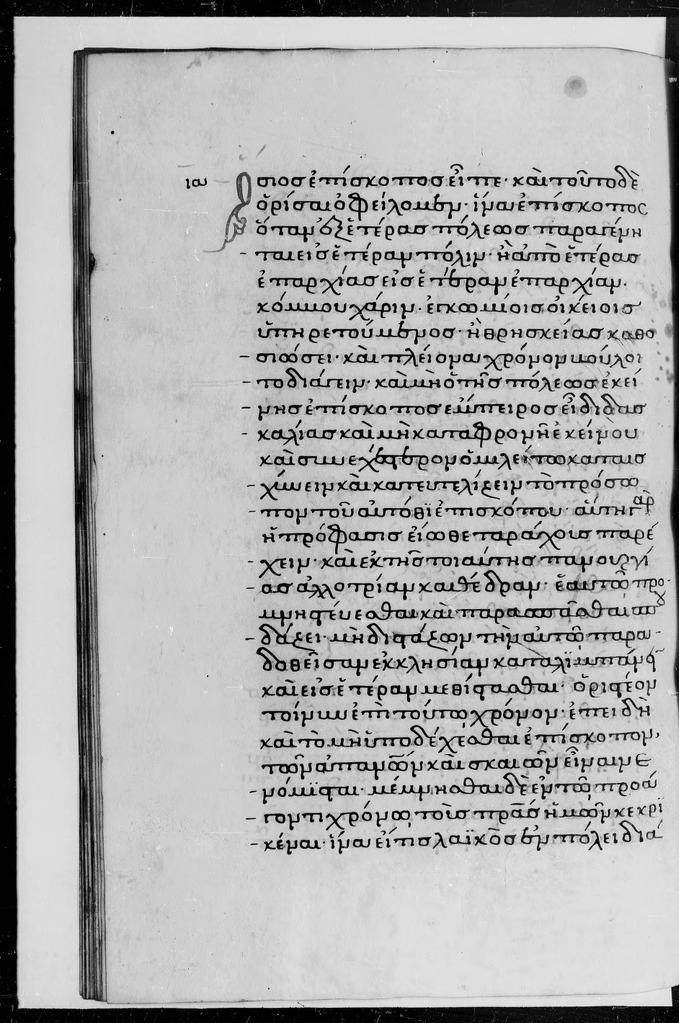 ια Ὅσιος ἐπίσκοπος εἶπε· καὶ τοῦτο δὲ
ὁρίσαι ὀφείλομεν· ἵνα ἐπίσκοπος
ὅταν ἐξ ἑτέρας πόλεως παραγένη
ται εἰς ἑτέραν πόλιν· ἢ ἀπὸ ἑτέρας
ἐπαρχίας εἰς ἑτέραν ἐπαρχίαν·
κόμπου χάριν· ἐγκωμίοις οἰκείοις
ὑπηρετούμενος· ἢ θρησκείας καθο
σιώσει· καὶ πλείονα χρόνον βούλοι
το διάγειν· καὶ μὴ ὁ τῆς πόλεως ἐκεί
νης ἐπίσκοπος ἔμπειρος εἴη διδας
καλίας καὶ μὴ καταφρονῇ ἐκείνου
καὶ συνεχέστερον ὁμιλεῖ τῶ καταισ
χύνειν καὶ κατευτελίζειν τὸ πρόσω
πον τοῦ αὐτόθι ἐπισκόπου· αὕτη γὰρ
ἡ πρόφασις εἴωθε ταράχους παρέ
χειν· καὶ ἐκ τῆς τοιαύτης πανουργί
ας ἀλλοτρίαν καθέδραν· ἑαυτῶ προ
μνηστεύεσθαι καὶ παρασπᾶσθαι σπου
δάζει· μὴ διστάζων τὴν αὐτῶ παρα
δοθεῖσαν ἐκκλησίαν καταλιμπάνειν
καὶ εἰς ἑτέραν μεθίστασθαι· ὁριστέον
τοίνυν ἐπὶ τούτω χρόνον· ἐπειδὴ
καὶ τὸ μὴ ὑποδέχεσθαι ἐπίσκοπον,
τῶν ἀπανθρώπων καὶ σκαιῶν εἶναι νε
νόμισται· μέμνησθαι δὲ ἐν τῶ προά
γοντι χρόνω, τοὺς πατέρας ἡμῶν κεκρι
κέναι· ἵνα εἴ τις λαϊκὸς ἐν πόλει διά